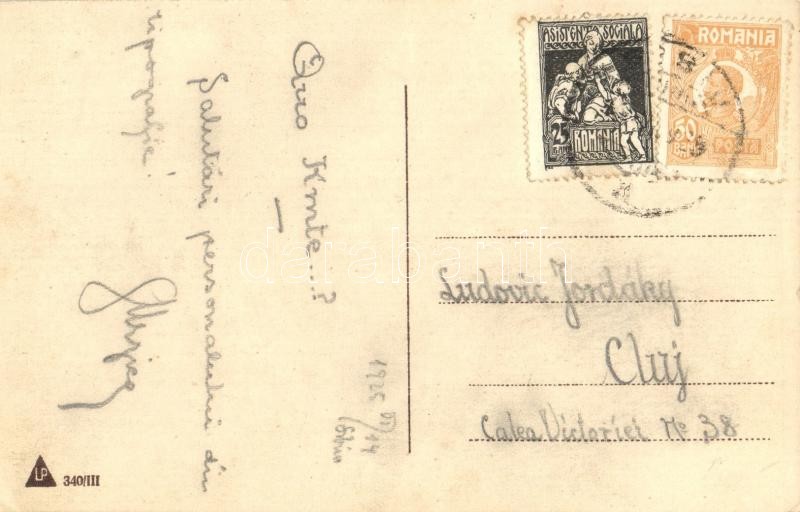 Quo Kmte...?
Salutări personalului din
tipografie!
1925 VI/14
ASISTENȚA SOCIALA
25
BANI
ROMANIA
ROMANIA
50
BANI
POSTA
Ludovic Jordáky
Cluj
Calea Victoriei No 38
LP
340/III
darabanth